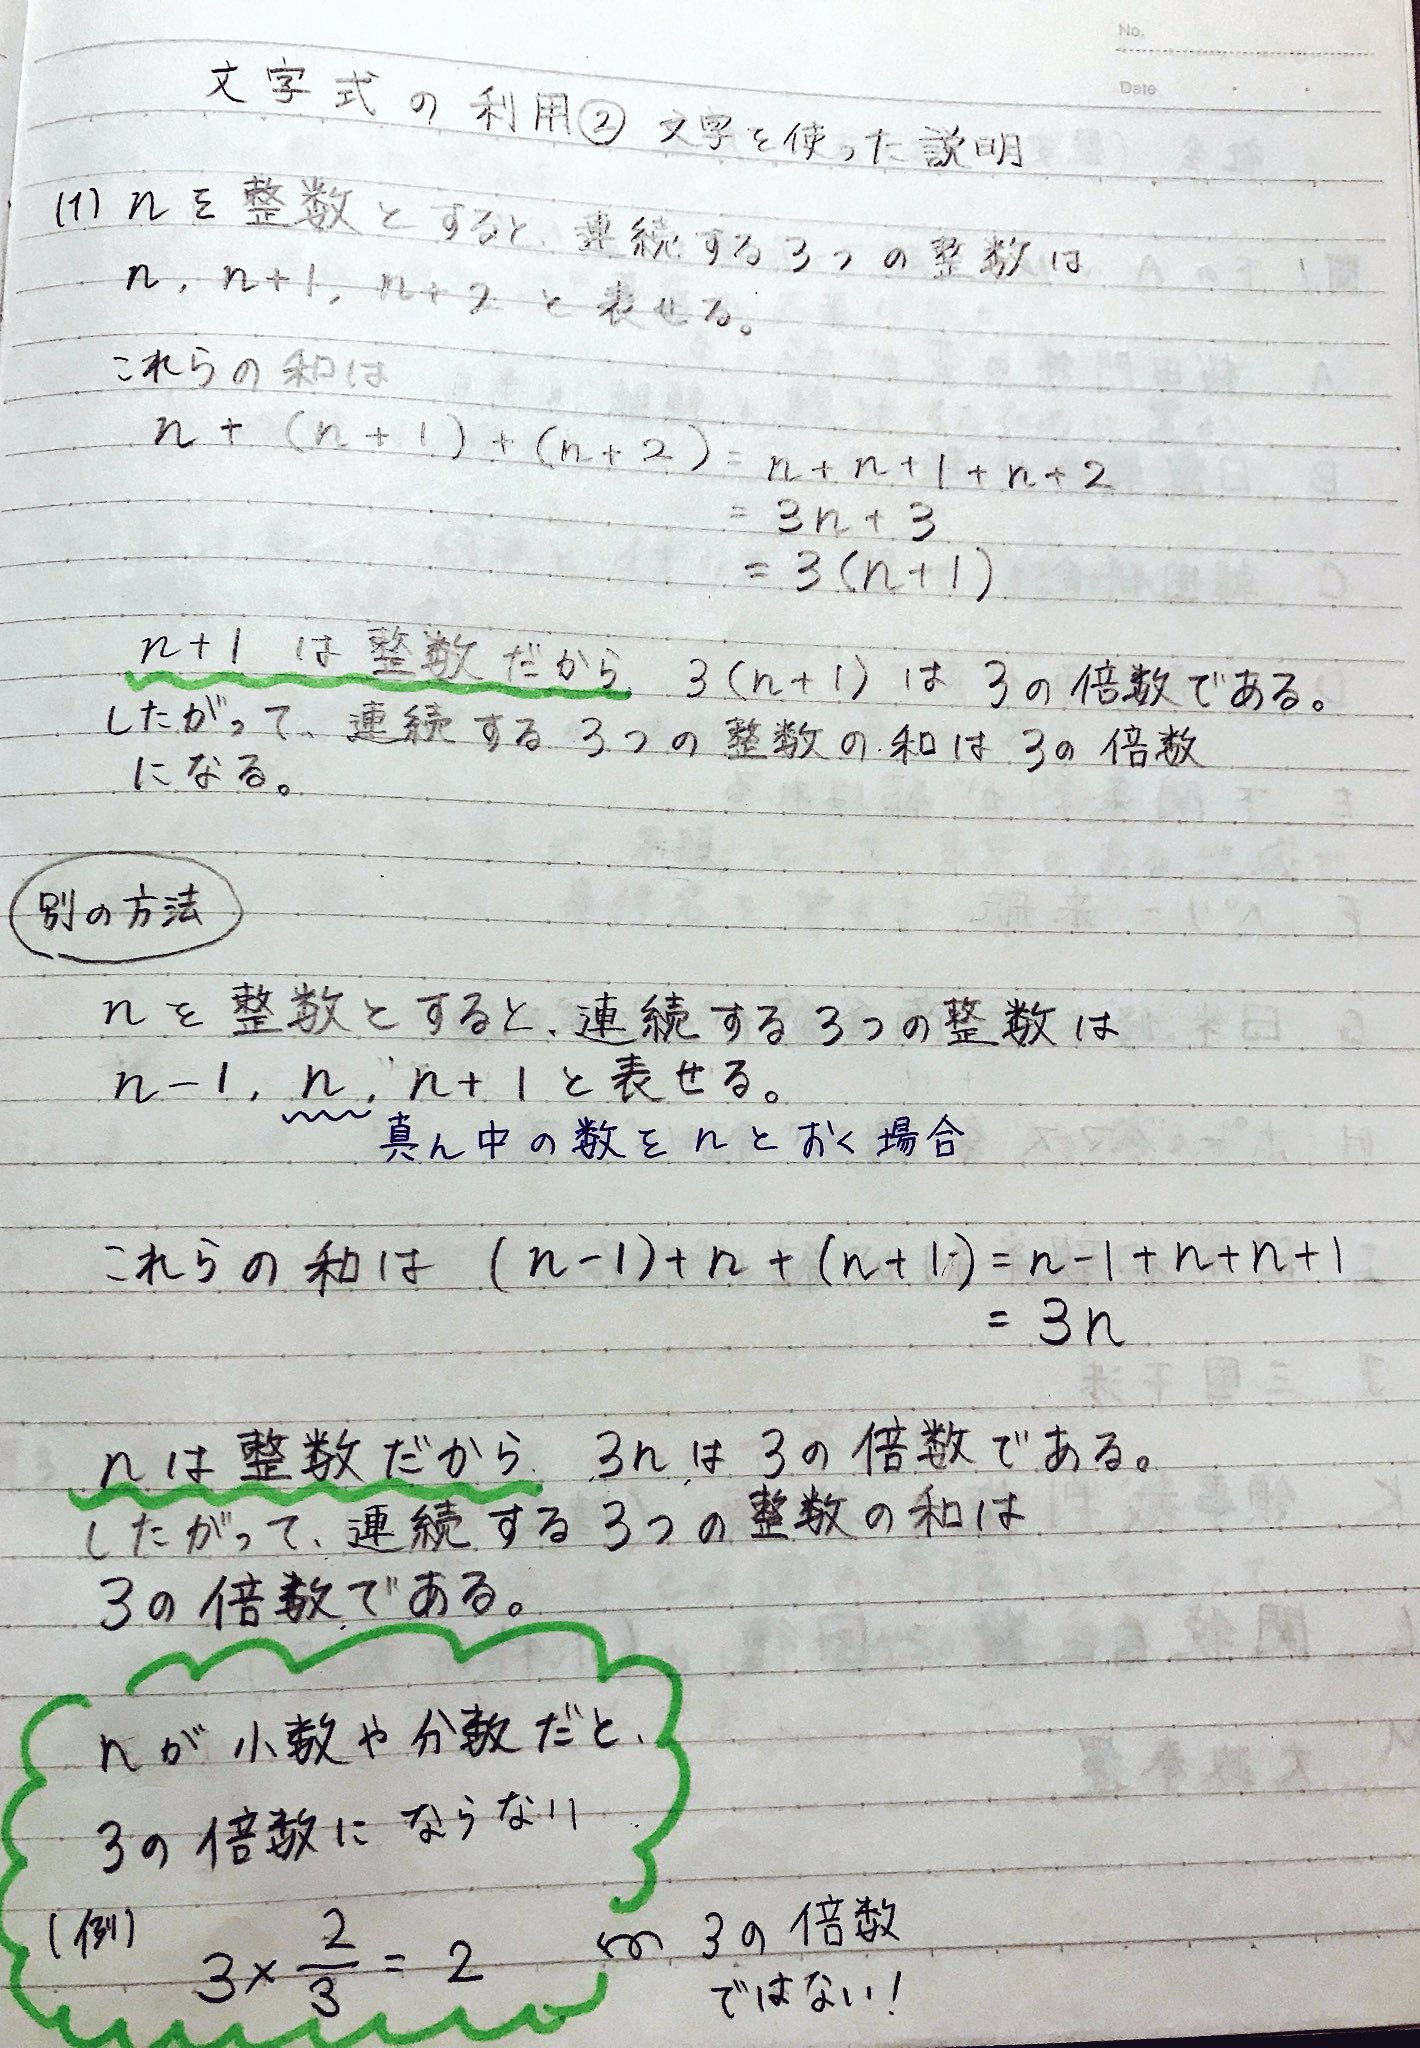 No.
Date
文字式の利用② 文字を使った説明
(1) nを整数とすると、連続する3つの整数は
n, n+1, n+2 と表せる。
これらの和は
n + (n+1) + (n+2) = n+n+1+n+2
= 3n+3
= 3(n+1)
n+1 は整数だから 3(n+1) は 3の倍数である。
したがって、連続する3つの整数の和は3の倍数
になる。
別の方法
nを整数とすると、連続する3つの整数は
n-1, n, n+1と表せる。
真ん中の数をnとおく場合
これらの和は (n-1)+n+(n+1)=n-1+n+n+1
= 3n
nは整数だから 3nは3の倍数である。
したがって、連続する3つの整数の和は
3の倍数である。
nが小数や分数だと、
3の倍数にならない
(例) 3×2/3=2 3の倍数
ではない!